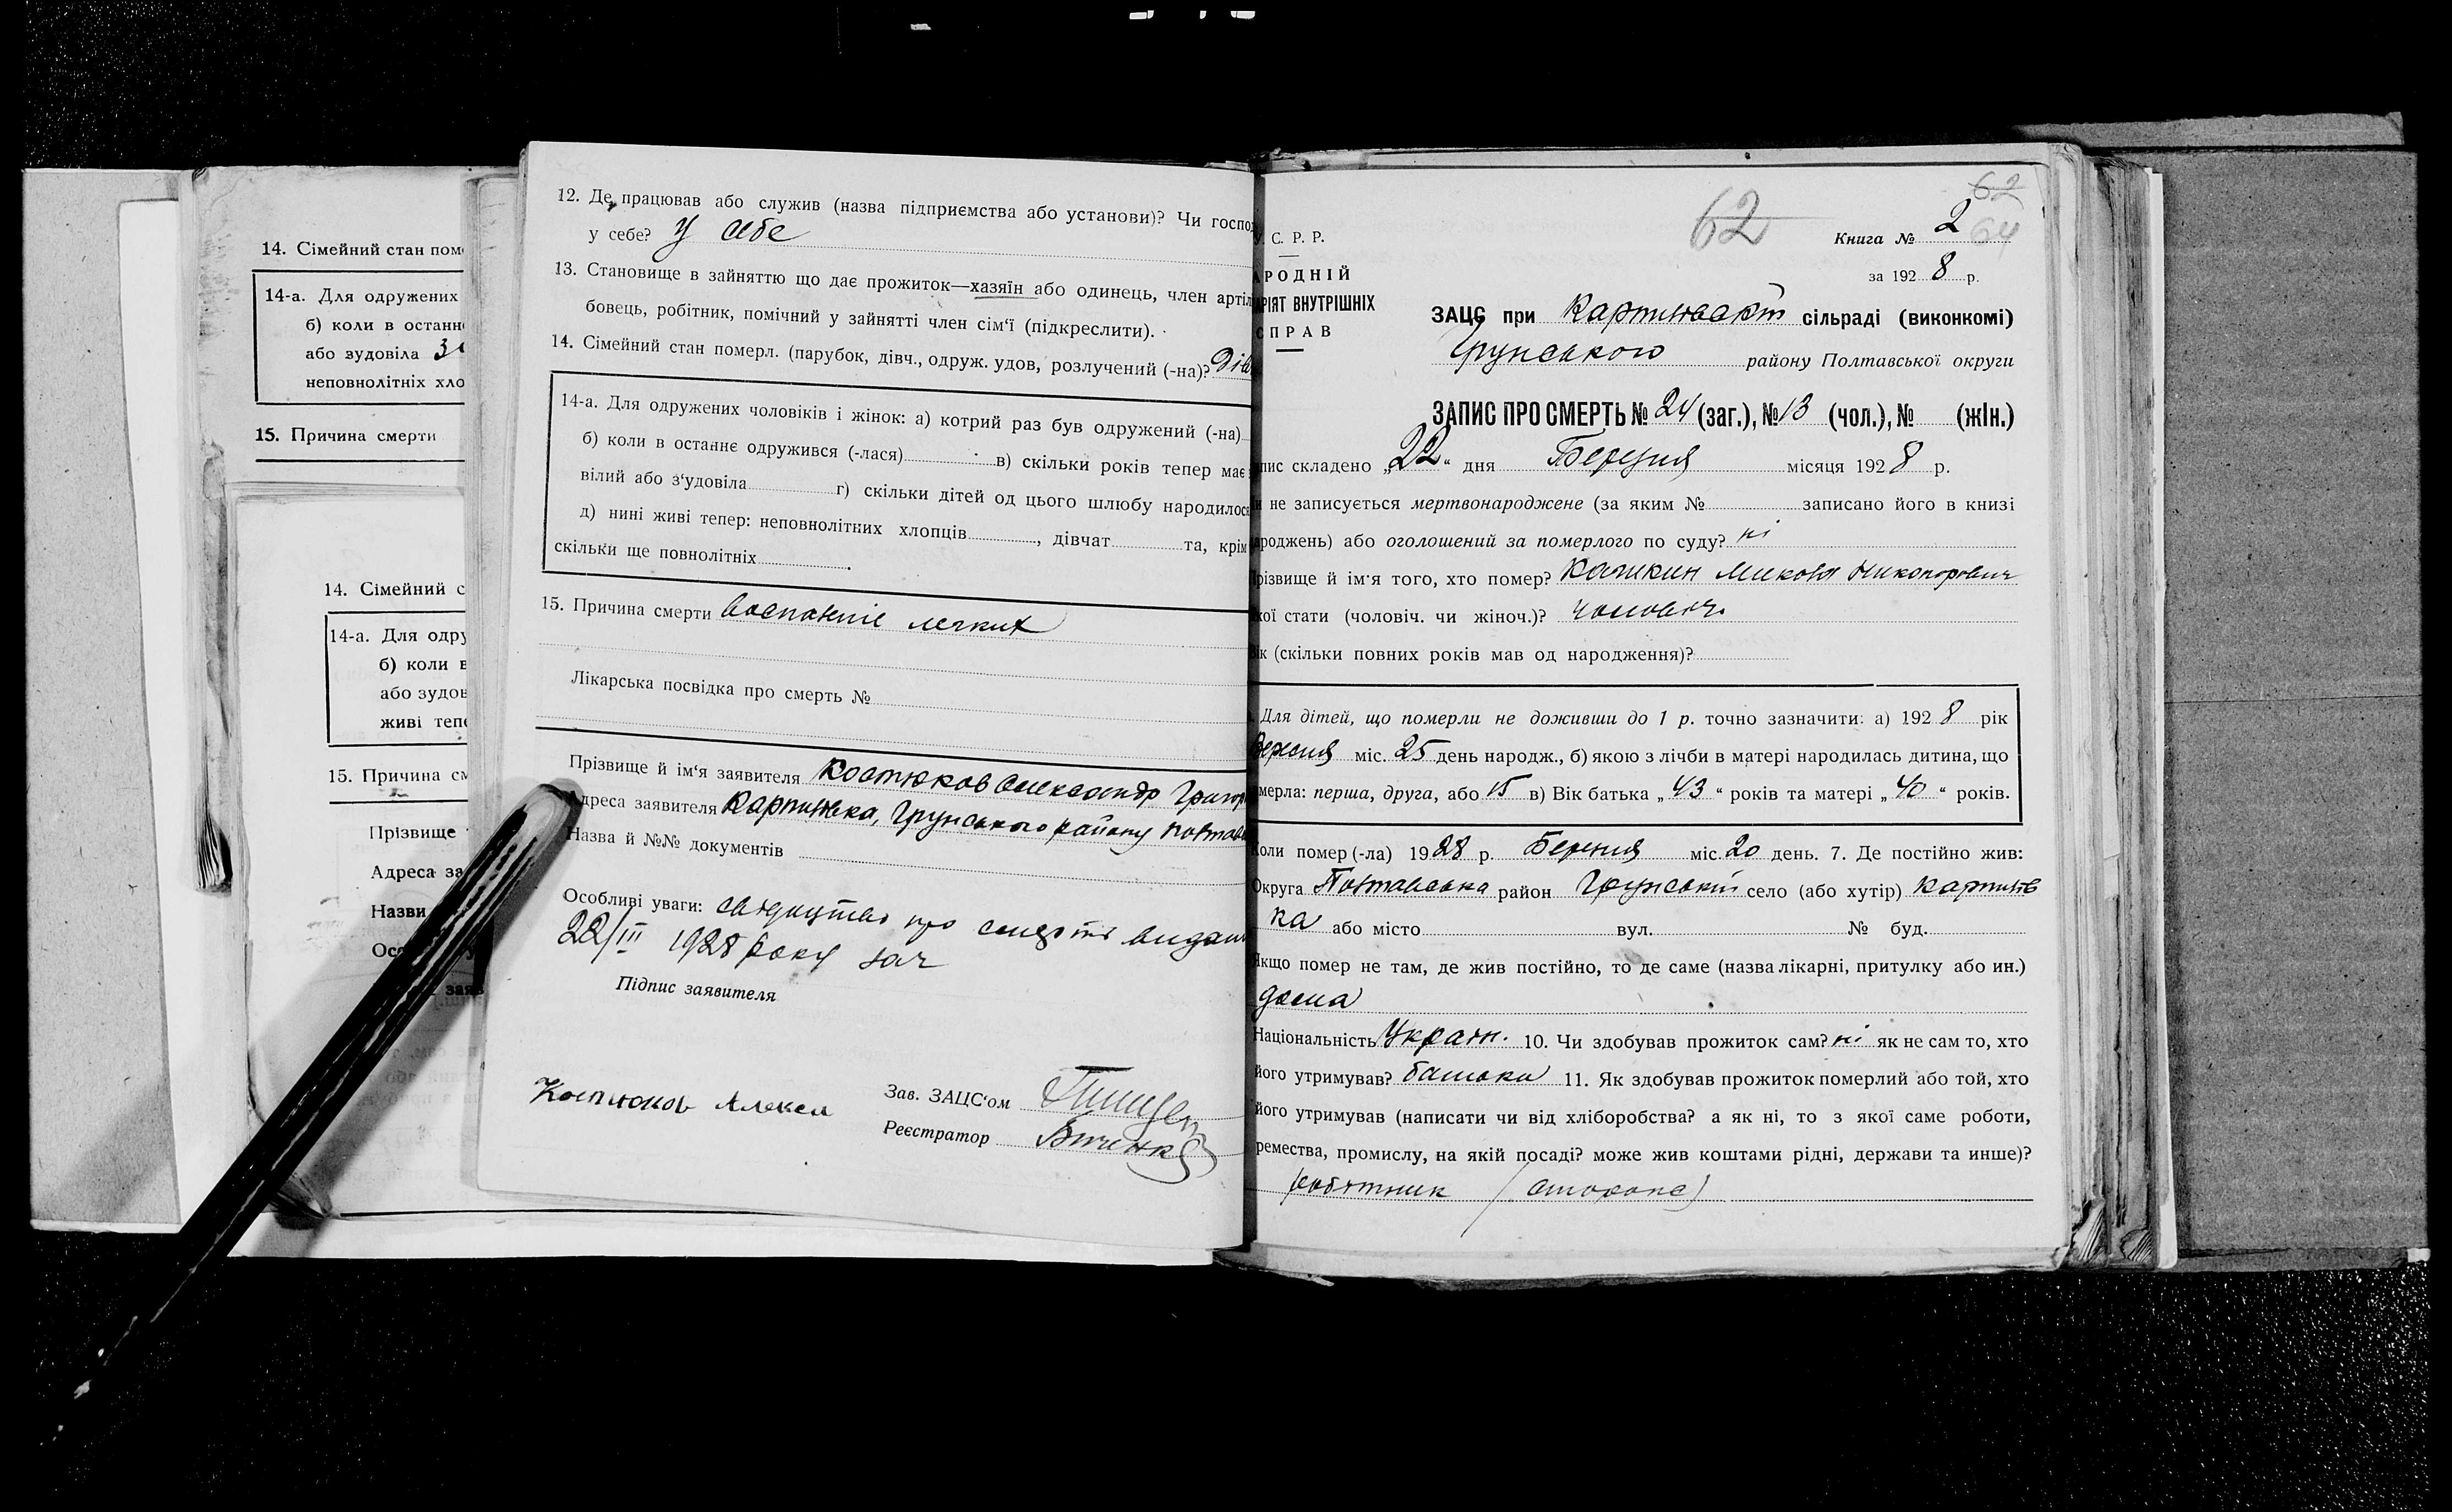 14. Сімейний стан пом
14-а. Для одружених
б) коли в останн
або зудовіла
неповнолітніх хло
15. Причина смерти
14. Сімейний с
14-а. Для одру
б) коли в
або зудов
живі тепе
15. Причина см
Прізвище
Адреса за
Назви
Ос
заяв
12. Де працював або служив (назва підприємства або установи)? Чи госпо
у себе? У себе
13. Становище в зайняттю що дає прожиток—хазяїн або одинець, член артіл
бовець, робітник, помічний у зайнятті член сім'ї (підкреслити).
14. Сімейний стан померл. (парубок, дівч., одруж. удов, розлучений (-на)? Дів
14-а. Для одружених чоловіків і жінок: а) котрий раз був одружений (-на)
б) коли в останнє одружився (-лася) в) скільки років тепер має
вілий або з'удовіла г) скільки дітей од цього шлюбу народилося
д) нині живі тепер: неповнолітних хлопців, дівчат та, крім
скільки ще повнолітніх.
15. Причина смерти воспоніє легких
Лікарська посвідка про смерть №
Прізвище й ім'я заявителя Костюков Олександр Григор
Адреса заявителя Карпилівка, Грунського району Полтав
Назва й №№ документів
Особливі уваги: свідоцтво про смерть видан
22/III 1928 року
Підпис заявителя
Костюков Алекса
Зав. ЗАЦС'ом
Реєстратор
62
62
64
У. С. Р. Р.
АРОДНІЙ
АРІЯТ ВНУТРІШНІХ
СПРАВ
Книга № 2
за 1928 р.
ЗАЦС при сільраді (виконкомі)
Грунського району Полтавської округи
ЗАПИС ПРО СМЕРТЬ № 24 (заг.), № 13 (чол.), № (жін.)
пис складено „22“ дня Березня місяця 1928 р.
и не записується мертвонароджене (за яким № записано його в книзі
ароджень) або оголошений за померлого по суду? ні
Прізвище й ім'я того, хто помер? Кашкин Микола Никонорович
кої стати (чоловіч. чи жіноч.)? чоловіч.
Вік (скільки повних років мав од народження)?
Для дітей, що померли не доживши до 1 р. точно зазначити: а) 1928 рік
міс. 25 день народж., б) якою з лічби в матері народилась дитина, що
мерла: перша, друга, або 15 в) Вік батька „43“ років та матері „40“ років.
Коли помер (-ла) 1928 р. Березня міс. 20 день. 7. Де постійно жив:
Округа Полтавська район Грунський село (або хутір) Карпилів
ка або місто вул. № буд.
Якщо помер не там, де жив постійно, то де саме (назва лікарні, притулку або ин.)
дома
Національність Україн. 10. Чи здобував прожиток сам? ні як не сам то, хто
його утримував? батьки 11. Як здобував прожиток померлий або той, хто
його утримував (написати чи від хліборобства? а як ні, то з якої саме роботи,
ремества, промислу, на якій посаді? може жив коштами рідні, держави та инше)?
робітник